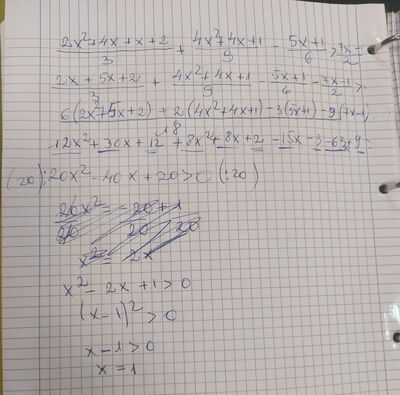 2x²+4x+x+2/3 + 4x²+4x+1/9 - 5x+1/6 > 7x-1/2
2x+5x+2/3 + 4x²+4x+1/9 - 5x+1/6 - 7x-1/2 >
6(2x²+5x+2)+2(4x²+4x+1)-3(5x+1)-9(7x-1)
18
12x²+30x+12+8x²+8x+2-15x-3-63+9
(20):20x²-40x+20>0 (:20)
x²-2x+1>0
(x-1)²>0
x-1>0
x=1